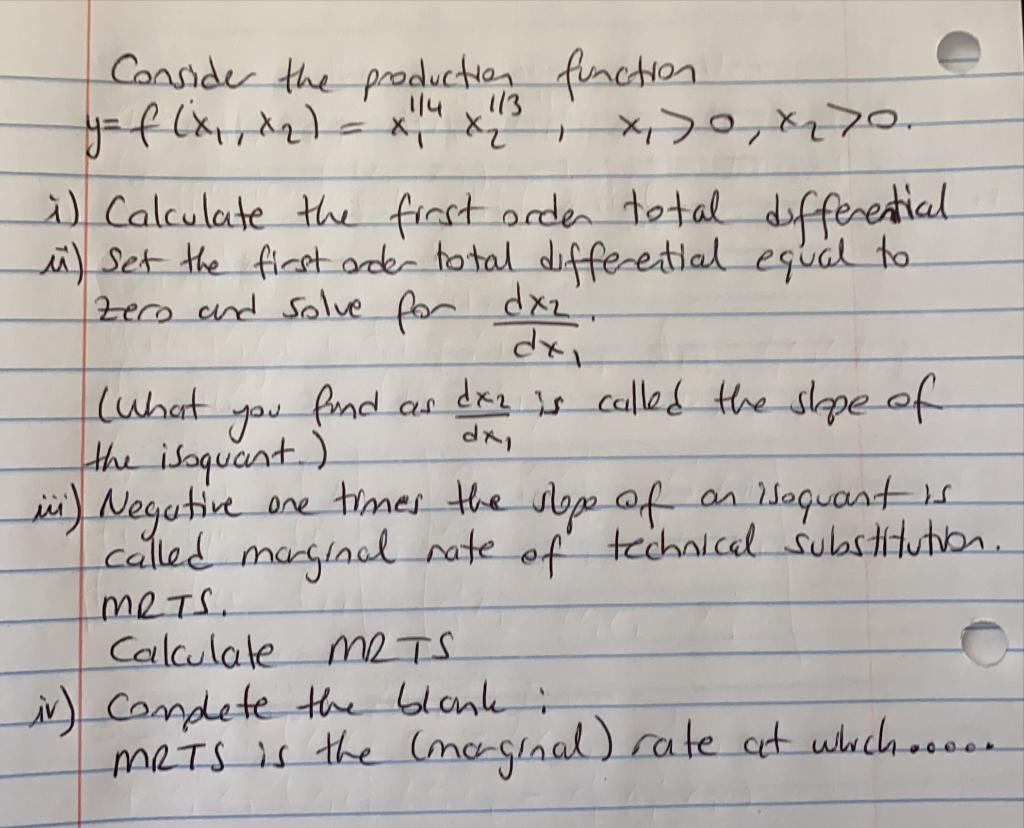 Consider the production function
y = f(x₁, x₂) = x₁^1/4 x₂^1/3 , x₁>0, x₂>0.
i) Calculate the first order total differential
ii) Set the first order total differential equal to
zero and solve for dx₂/dx₁.
(What you find as dx₂/dx₁ is called the slope of
the isoquant.)
iii) Negative one times the slope of an isoquant is
called marginal rate of technical substitution.
MRTS.
Calculate MRTS
iv) Complete the blank :
MRTS is the (marginal) rate at which.....